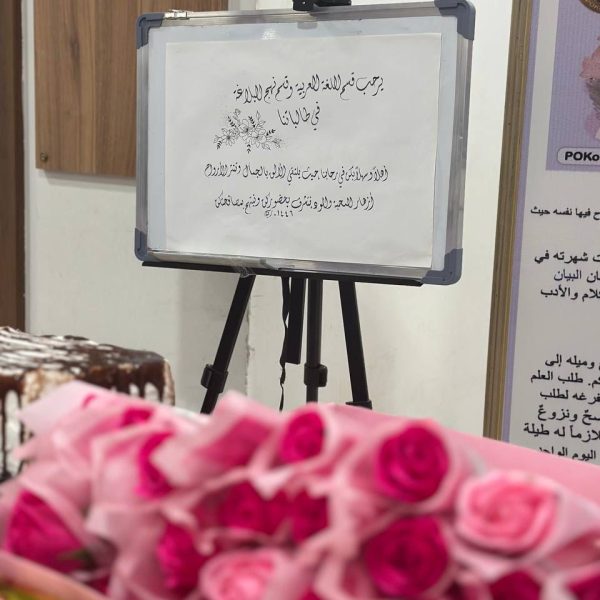 يرحب قسم اللغة العربية وقسم نهج البلاغة
في طالباتنا
أهلاً وسهلاً بكن في رحابنا حيث يلتقي الألق بالجمال وتنثر الأرواح
أزهار المحبة والود نتشرف بحضوركن ونبتهج
١٤٤٦
POKo
ح فيها نفسه حيث
ت شهرته في
ان البيان
كلام والأدب
وميله إلى
كم. طلب العلم
فرغه لطلب
سحّ ونزوعٌ
لازماً له طيلة
اليوم الواحد